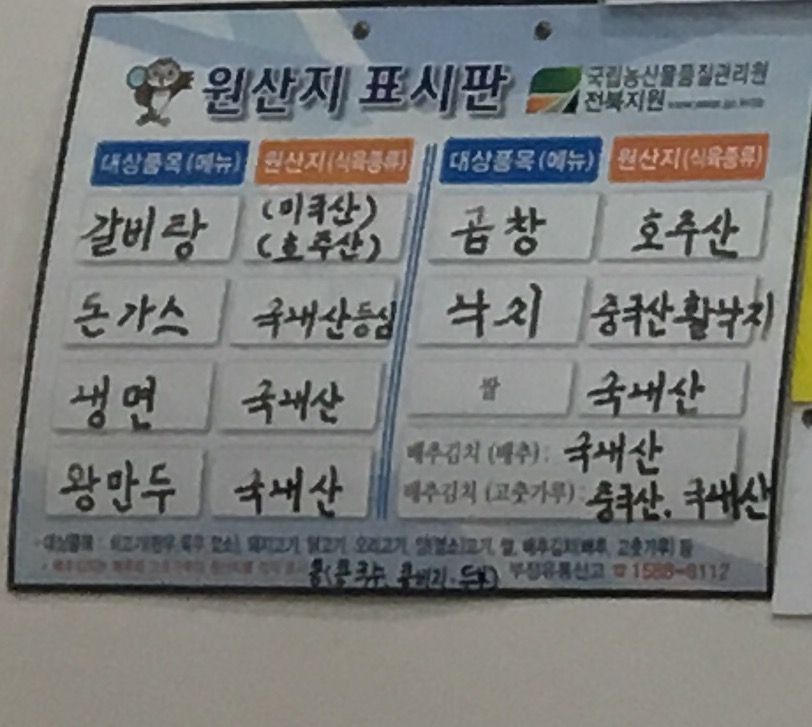 원산지 표시판
국립농산물품질관리원
전북지원
대상품목(메뉴) 원산지(식육종류) 대상품목(메뉴) 원산지(식육종류)
갈비탕 (미국산) (호주산) 곱창 호주산
돈가스 국내산등심 낙지 중국산활낙지
냉면 국내산 쌀 국내산
왕만두 국내산 배추김치(배추): 국내산
배추김치(고춧가루): 중국산, 국내산
대상품목 : 쇠고기(한우, 육우, 젖소), 돼지고기, 닭고기, 오리고기, 양(염소)고기, 쌀, 배추김치(배추, 고춧가루) 등
콩(콩국수, 콩비지, 두부) 부정유통신고 ☎1588-8112